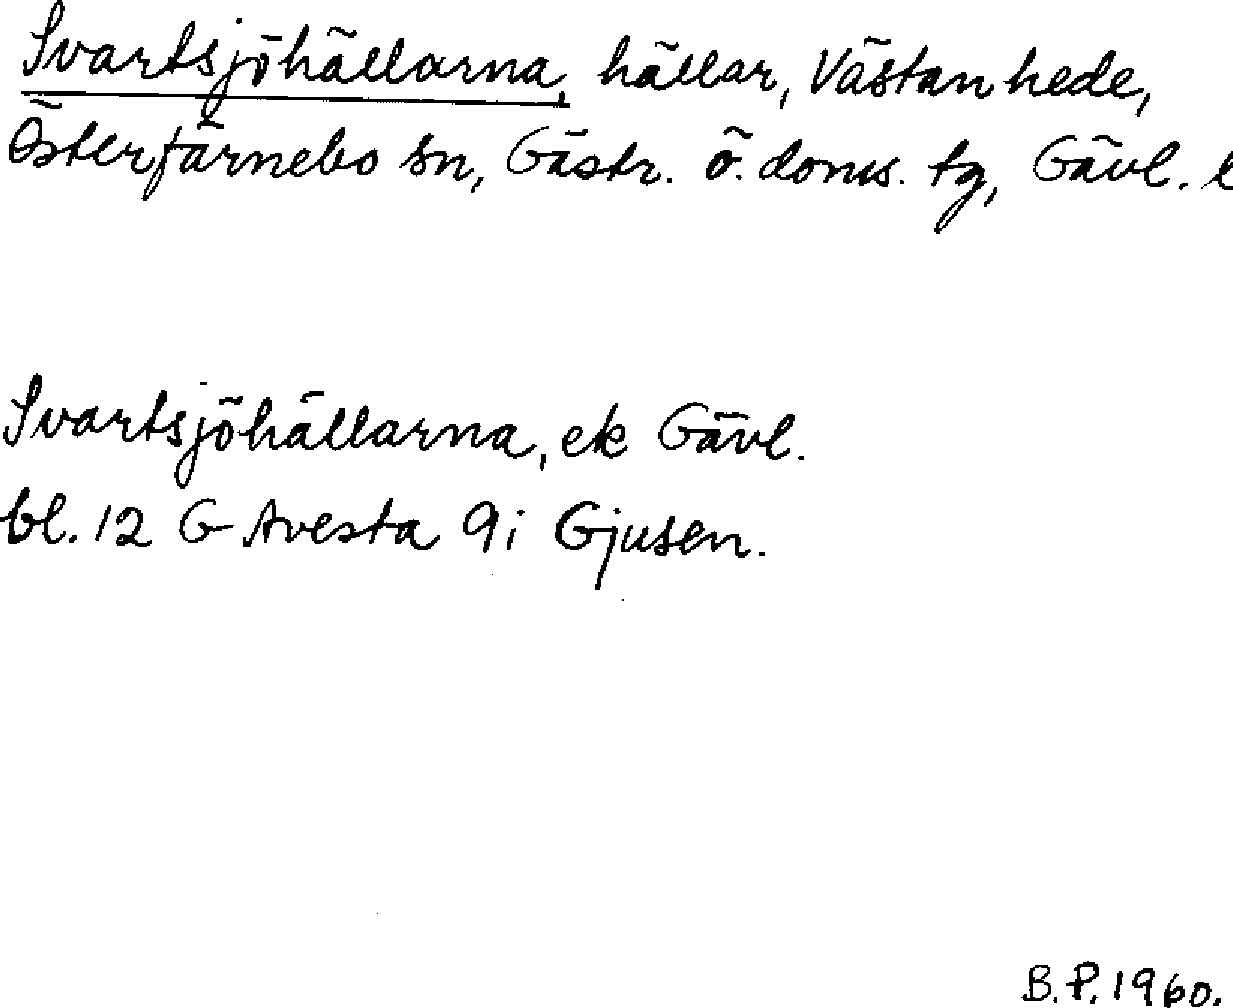 Svartsjöhällarna, hällar, Västanhede,
Österfärnebo sn, Gästr. ö. doms. tg, Gävl. l
Svartsjöhällarna, ek Gävl.
bl. 12 G Avesta 9i Gjusen.
B.P. 1960.